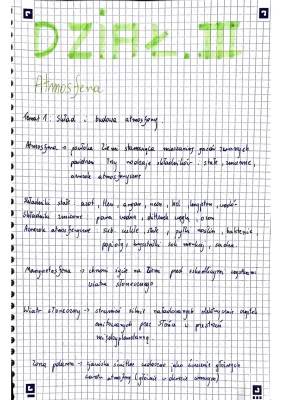 DZIAŁ. III
Atmosfera
Temat 1: Skład i budowa atmosfery
Atmosfera → powłoka Ziemi stanowiąca mieszaninę gazów zwanych
powietrzem Trzy rodzaje składników: stałe, zmienne,
aerozole atmosferyczne
Składniki stałe: azot, tlen, argon, neon, hel, krypton, wodór
Składniki zmienne: para wodna, dittlenek węgla, ozon
Aerozole atmosferyczne: sub. ciekłe stałe, pyłki roślin, bakterie,
popioły, kryształki soli morskiej, sadza.
Magnetosfera → chroni życie na Ziemi przed szkodliwym
wiatru słonecznego.
Wiatr słoneczny → strumień silnie naładowanych elektrycznie cząstek
emitowanych przez Słońce w przestrzeń
międzyplanetarną.
Zorza polarna → zjawisko świetlne widoczne jako świecenie górnych
warstw atmosfery (głównie w okresie zimowym)